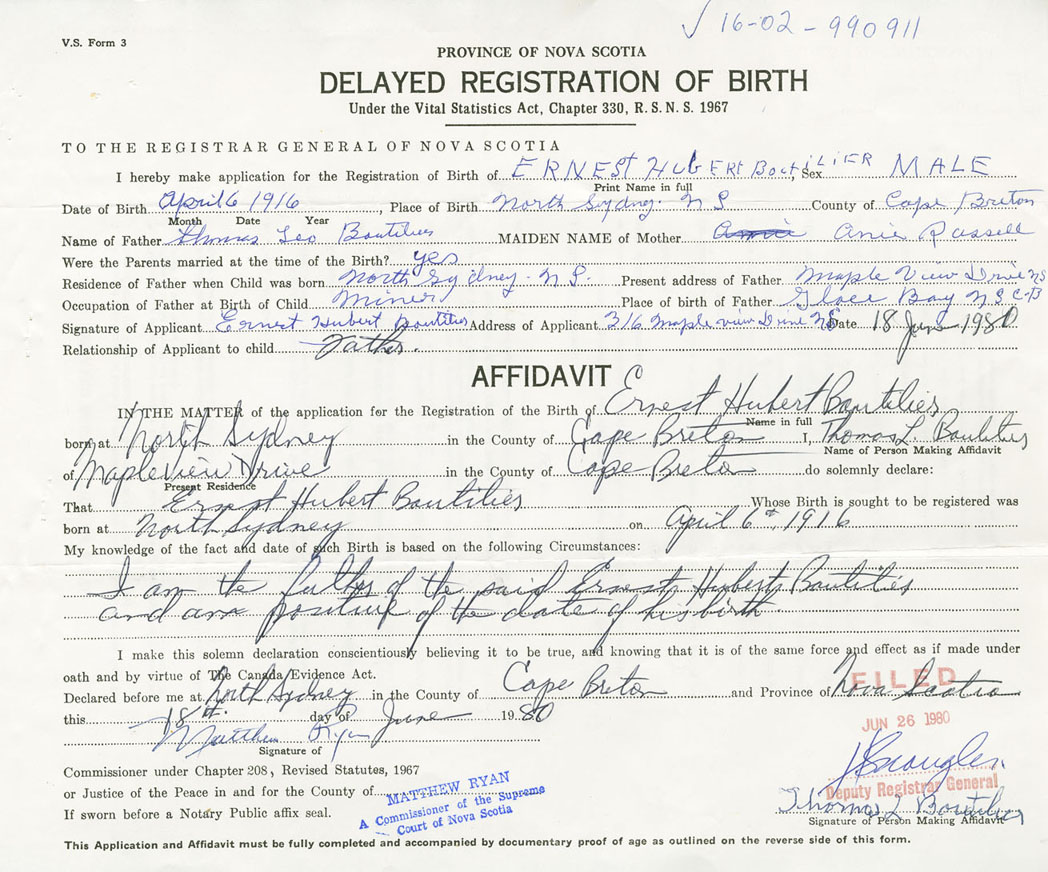 √ 16-02-990911
V.S. Form 3
PROVINCE OF NOVA SCOTIA
DELAYED REGISTRATION OF BIRTH
Under the Vital Statistics Act, Chapter 330, R. S. N. S. 1967
TO THE REGISTRAR GENERAL OF NOVA SCOTIA
I hereby make application for the Registration of Birth of ERNEST HUBERT Boutilier, Sex MALE
Print Name in full
Date of Birth April 6 1916, Place of Birth North Sydney. N S County of Cape Breton
Month Date Year
Name of Father Thomas Leo Boutilier MAIDEN NAME of Mother Anie Russell
Were the Parents married at the time of the Birth? yes
Residence of Father when Child was born North Sydney. N.S. Present address of Father Maple View Drive NS
Occupation of Father at Birth of Child Miner Place of birth of Father Glace Bay N.S. C-B
Signature of Applicant Ernest Hubert Boutilier Address of Applicant 316 Maple view Drive NS Date 18 June 1980
Relationship of Applicant to child Father.
AFFIDAVIT
IN THE MATTER of the application for the Registration of the Birth of Ernest Hubert Boutilier
Name in full
born at North Sydney in the County of Cape Breton I, Thomas L. Boutilier
Name of Person Making Affidavit
of Maple View Drive in the County of Cape Breton do solemnly declare:
Present Residence
That Ernest Hubert Boutilier Whose Birth is sought to be registered was
born at North Sydney on April 6th, 1916
My knowledge of the fact and date of such Birth is based on the following Circumstances:
I am the father of the said Ernest Hubert Boutilier
and am positive of the date of his birth
I make this solemn declaration conscientiously believing it to be true, and knowing that it is of the same force and effect as if made under
oath and by virtue of The Canada Evidence Act.
Declared before me at North Sydney in the County of Cape Breton and Province of Nova Scotia
FILED
this 18th. day of June 1980
JUN 26 1980
Matthew Ryan
Signature of
Commissioner under Chapter 208, Revised Statutes, 1967
or Justice of the Peace in and for the County of
MATTHEW RYAN
A Commissioner of the Supreme
Court of Nova Scotia
Deputy Registrar General
Thomas L Boutilier
Signature of Person Making Affidavit
If sworn before a Notary Public affix seal.
This Application and Affidavit must be fully completed and accompanied by documentary proof of age as outlined on the reverse side of this form.